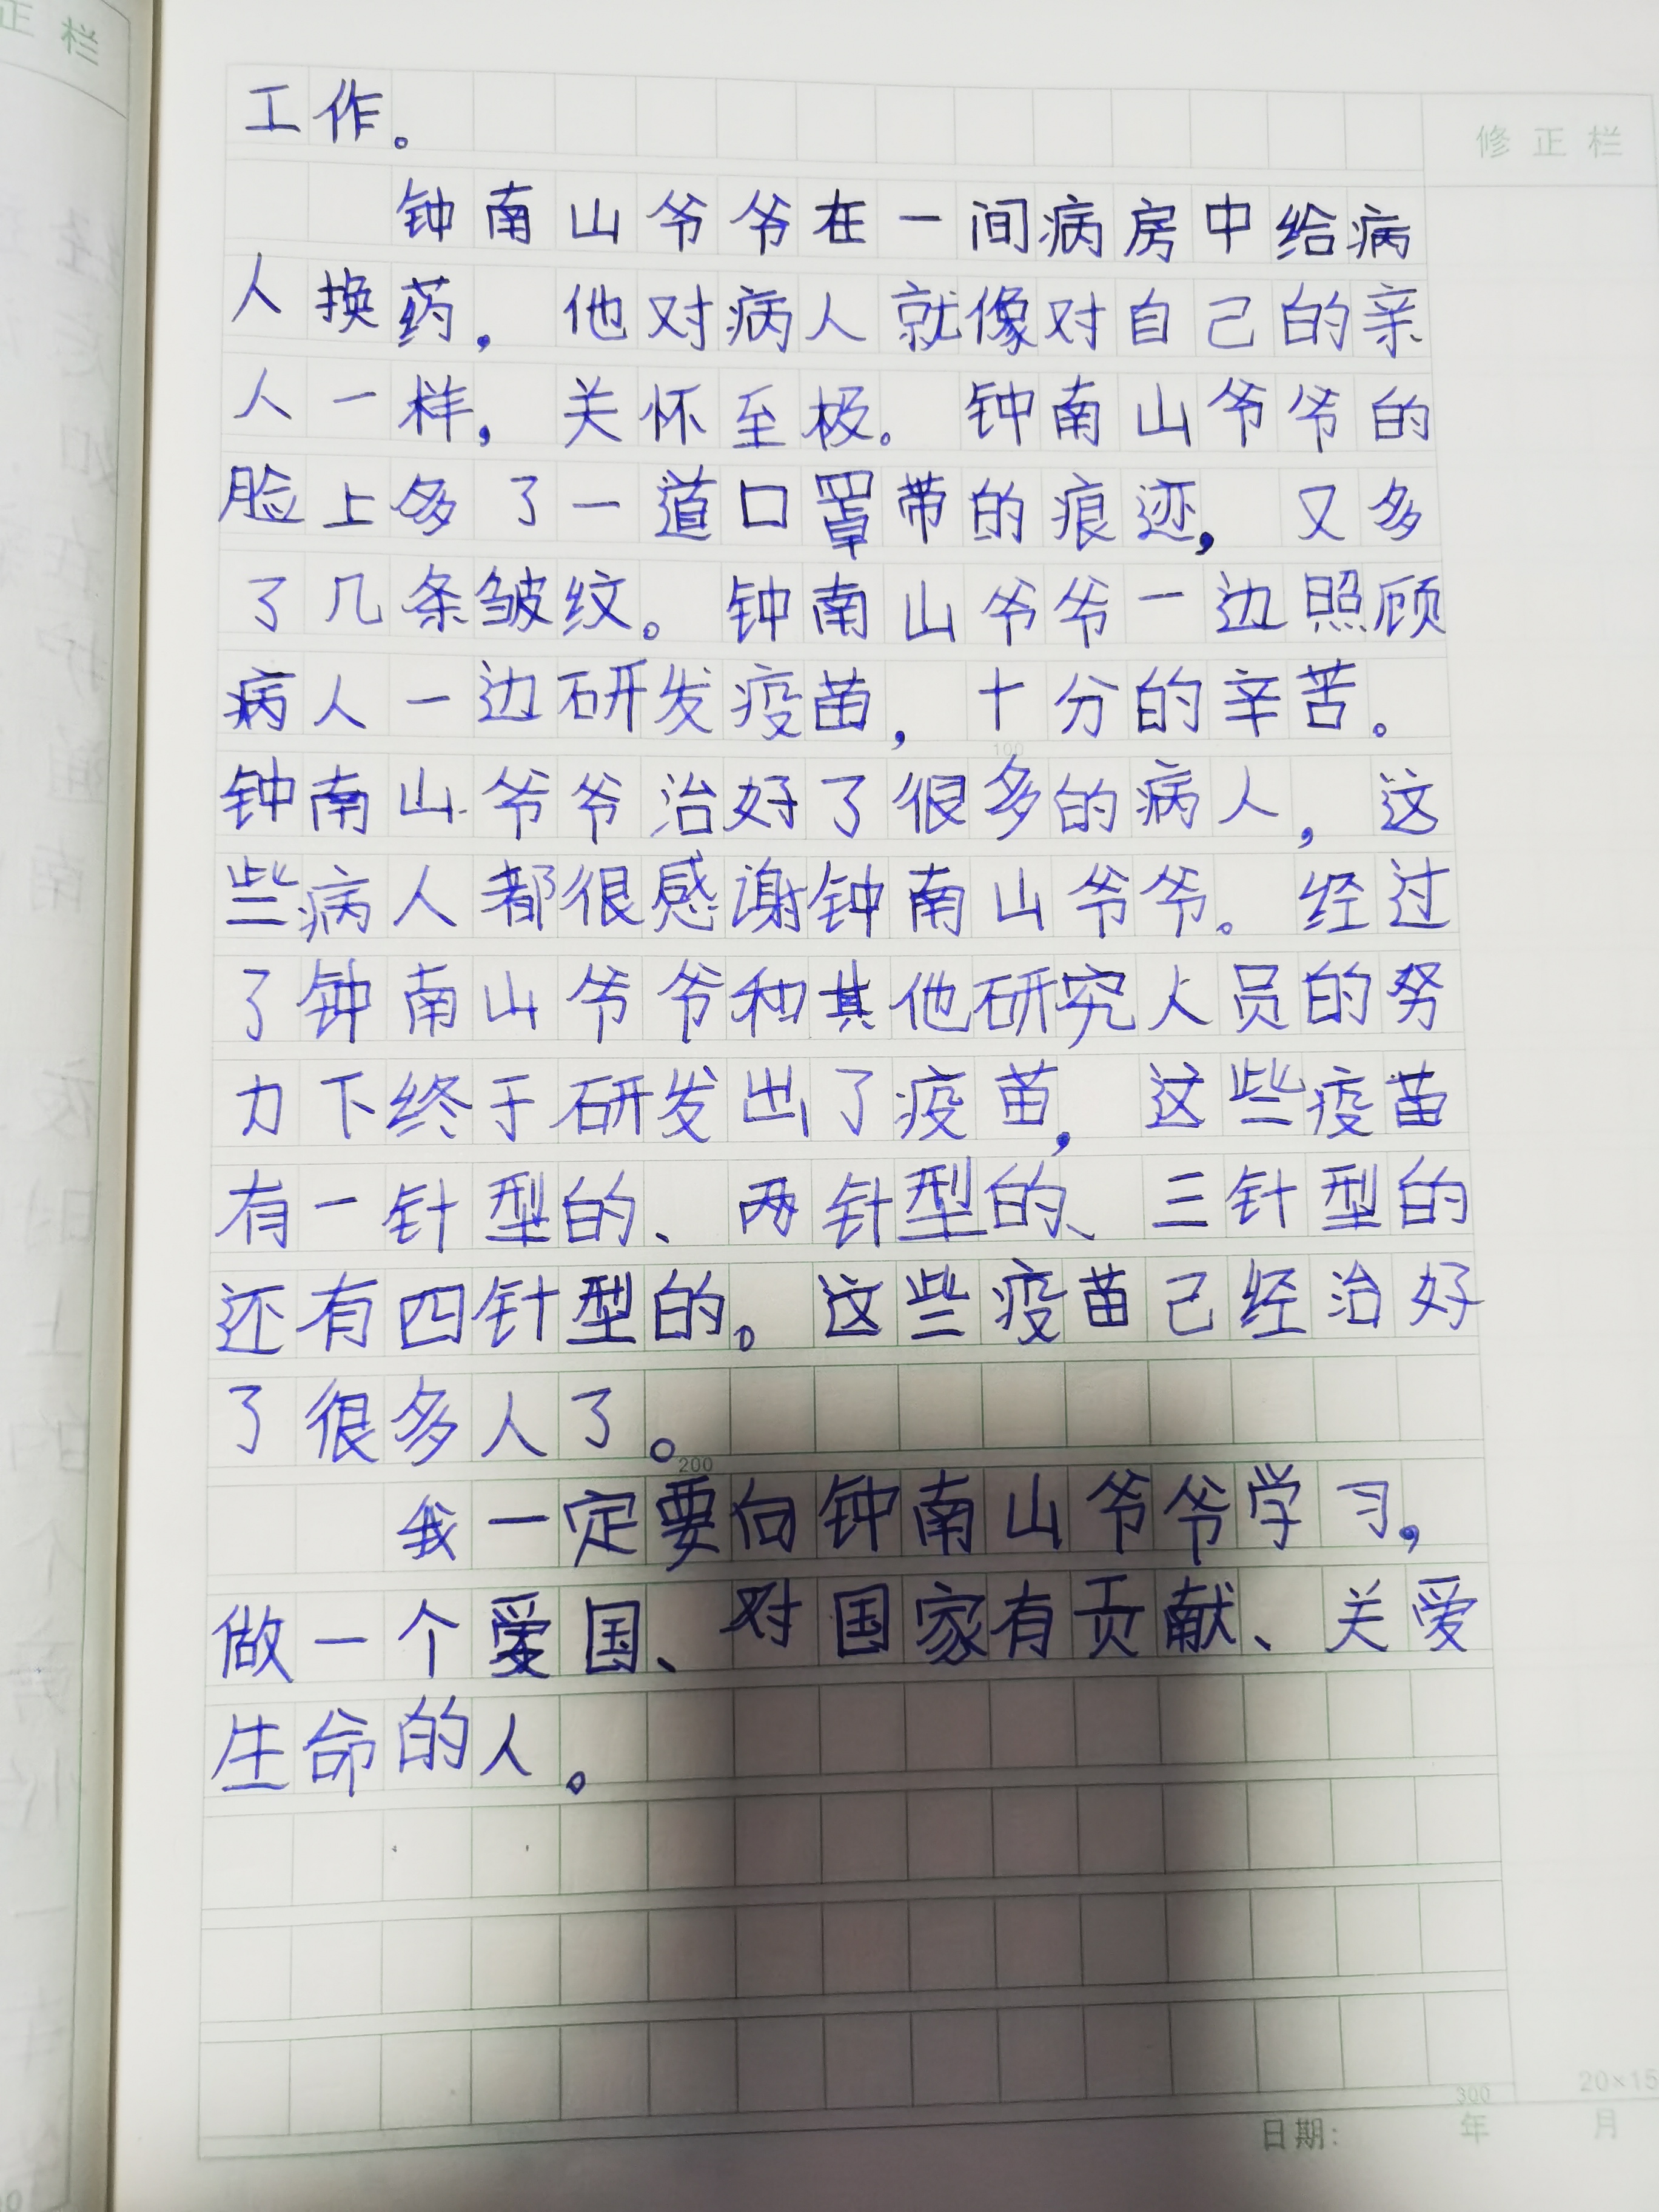 正栏
修正栏
工作。
钟南山爷爷在一间病房中给病
人换药，他对病人就像对自己的亲
人一样，关怀至极。钟南山爷爷的
脸上多了一道口罩带的痕迹，又多
了几条皱纹。钟南山爷爷一边照顾
病人一边研发疫苗，十分的辛苦。
100
钟南山爷爷治好了很多的病人，这
些病人都很感谢钟南山爷爷。经过
了钟南山爷爷和其他研究人员的努
力下终于研发出了疫苗，这些疫苗
有一针型的、两针型的、三针型的
还有四针型的。这些疫苗己经治好
了很多人了。
200
我一定要向钟南山爷爷学习，
做一个爱国、对国家有贡献、关爱
生命的人。
300
20×15
日期： 年 月